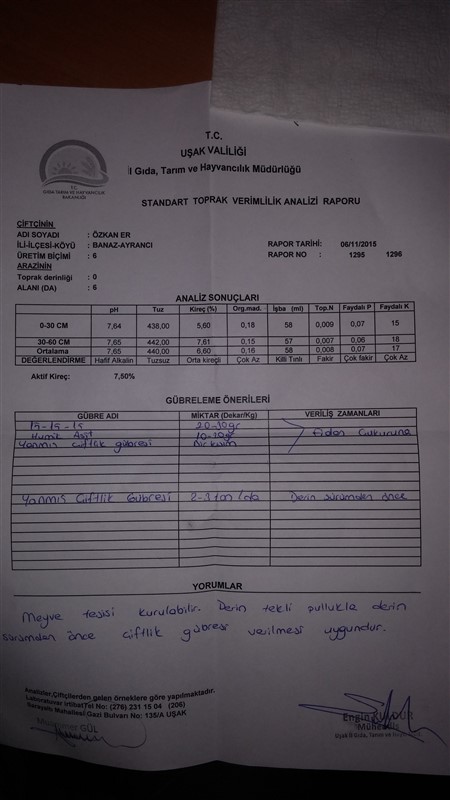 T.C.
UŞAK VALİLİĞİ
İl Gıda, Tarım ve Hayvancılık Müdürlüğü
T.C.
GIDA TARIM VE HAYVANCILIK
BAKANLIĞI
STANDART TOPRAK VERİMLİLİK ANALİZİ RAPORU
ÇİFTÇİNİN
ADI SOYADI : ÖZKAN ER
İLİ-İLÇESİ-KÖYÜ : BANAZ-AYRANCI RAPOR TARİHİ: 06/11/2015
ÜRETİM BİÇİMİ : 6 RAPOR NO : 1295 1296
ARAZİNİN
Toprak derinliği : 0
ALANI (DA) : 6
ANALİZ SONUÇLARI
pH Tuz Kireç (%) Org.mad. İşba (ml) Top.N Faydalı P Faydalı K
0-30 CM 7,64 438,00 5,60 0,18 58 0,009 0,07 15
30-60 CM 7,65 442,00 7,61 0,15 57 0,007 0,06 18
Ortalama 7,65 440,00 6,60 0,16 58 0,008 0,07 17
DEĞERLENDİRME Hafif Alkalin Tuzsuz Orta kireçli Çok Az Killi Tınlı Fakir Çok fakir Çok Az
Aktif Kireç: 7,50%
GÜBRELEME ÖNERİLERİ
GÜBRE ADI MİKTAR (Dekar/Kg) VERİLİŞ ZAMANLARI
15-15-15 20-30gr
Humik Asit 10-30gr Fidan Çukuruna
Yanmış çiftlik gübresi
Yanmış Çiftlik Gübresi 2-3 ton/da Derin sürümden önce
YORUMLAR
Meyve tesisi kurulabilir. Derin tekli pullukla derin
sürümden önce çiftlik gübresi verilmesi uygundur.
Analizler,Çiftçilerden gelen örneklere göre yapılmaktadır.
Laboratuvar İrtibatTel No: (276) 231 15 04 (206)
Sarayaltı Mahallesi Gazi Bulvarı No: 135/A UŞAK
GÜL
Engin
Mühendis
Uşak İl Gıda, Tarım ve